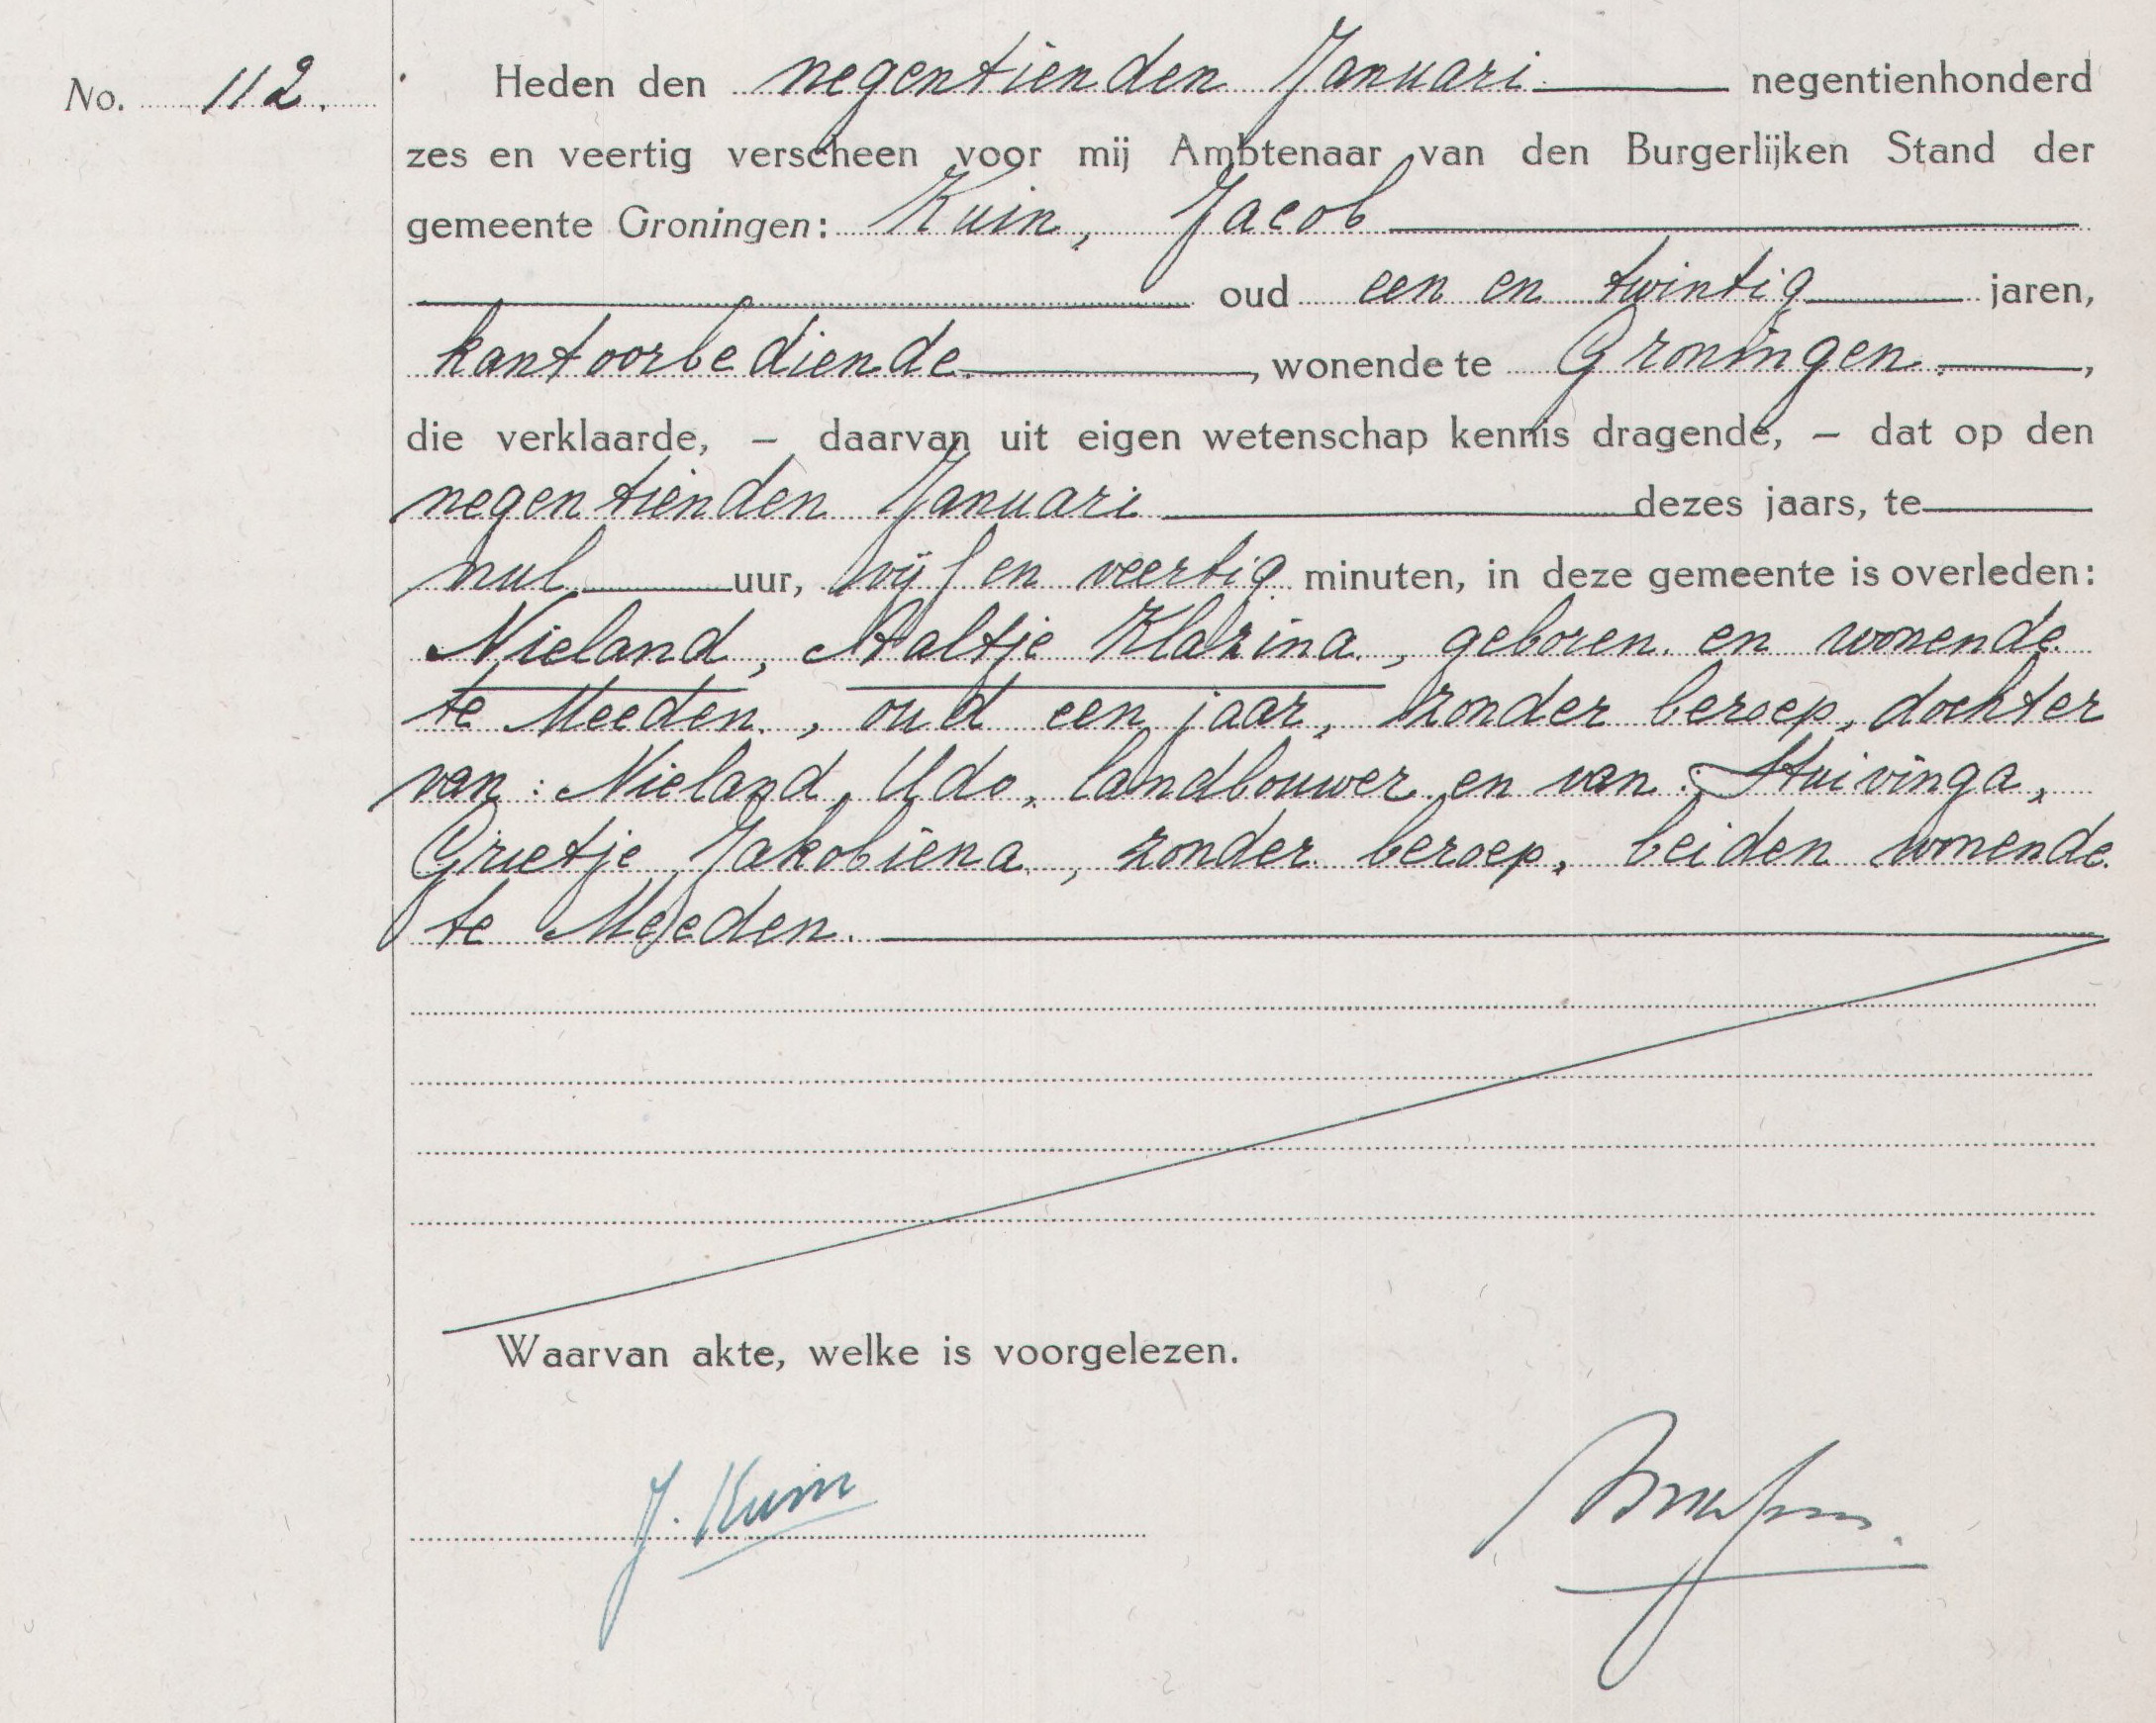 No. 112.
Heden den negentienden Januari negentienhonderd
zes en veertig verscheen voor mij Ambtenaar van den Burgerlijken Stand der
gemeente Groningen: Kuin, Jacob
oud een en twintig jaren,
kantoorbediende, wonende te Groningen,
die verklaarde, – daarvan uit eigen wetenschap kennis dragende, – dat op den
negentienden Januari dezes jaars, te
nul uur, vijf en veertig minuten, in deze gemeente is overleden:
Nieland, Aaltje Klazina, geboren en wonende
te Meeden, oud een jaar, zonder beroep, dochter
van: Nieland, Udo, landbouwer en van: Stuivinga,
Grietje Jakobiena, zonder beroep, beiden wonende
te Meeden.
Waarvan akte, welke is voorgelezen.
J. Kuin